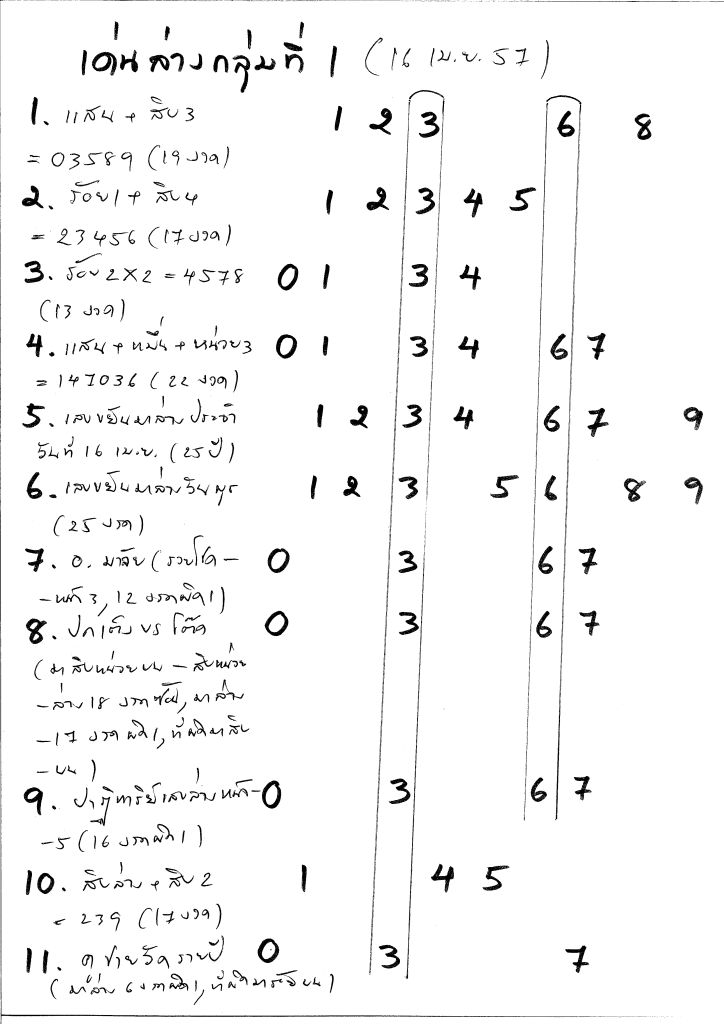 เด่นล่างกลุ่มที่ 1 (16 เม.ย. 57)
1. แสน + สิบ3 1 2 3 6 8
= 03589 (19 งวด)
2. ร้อย1 + สิบ4 1 2 3 4 5
= 23456 (17 งวด)
3. ร้อย2X2 = 4578 0 1 3 4
(13 งวด)
4. แสน + หมื่น + หน่วย3 0 1 3 4 6 7
= 147036 (22 งวด)
5. เลขขยันมาล่างประจำ 1 2 3 4 6 7 9
วันที่ 16 เม.ย. (25 ปี)
6. เลขขยันมาล่างวันพุธ 1 2 3 5 6 8 9
(25 งวด)
7. อ. มาลัย (รวยโชค – 0 3 6 7
– หน้า 3, 12 งวดผิด 1)
8. ปกเต็ง บร โต๊ด 0 3 6 7
(มาสิบหน่วยบน – สิบหน่วย
– ล่าง 18 งวด, มาล่าง
– 17 งวดผิด 1, ที่ผิดมาสิบ
– บน)
9. ปาฏิหาริย์เลขล่างหน้า – 0 3 6 7
– 5 (16 งวดผิด 1)
10. สิบล่าง + สิบ2 1 4 5
= 239 (17 งวด)
11. ฅ ชายวัดรายปี 0 3 7
(มาล่าง 6 งวดผิด 1, ที่ผิดมาร้อยบน)